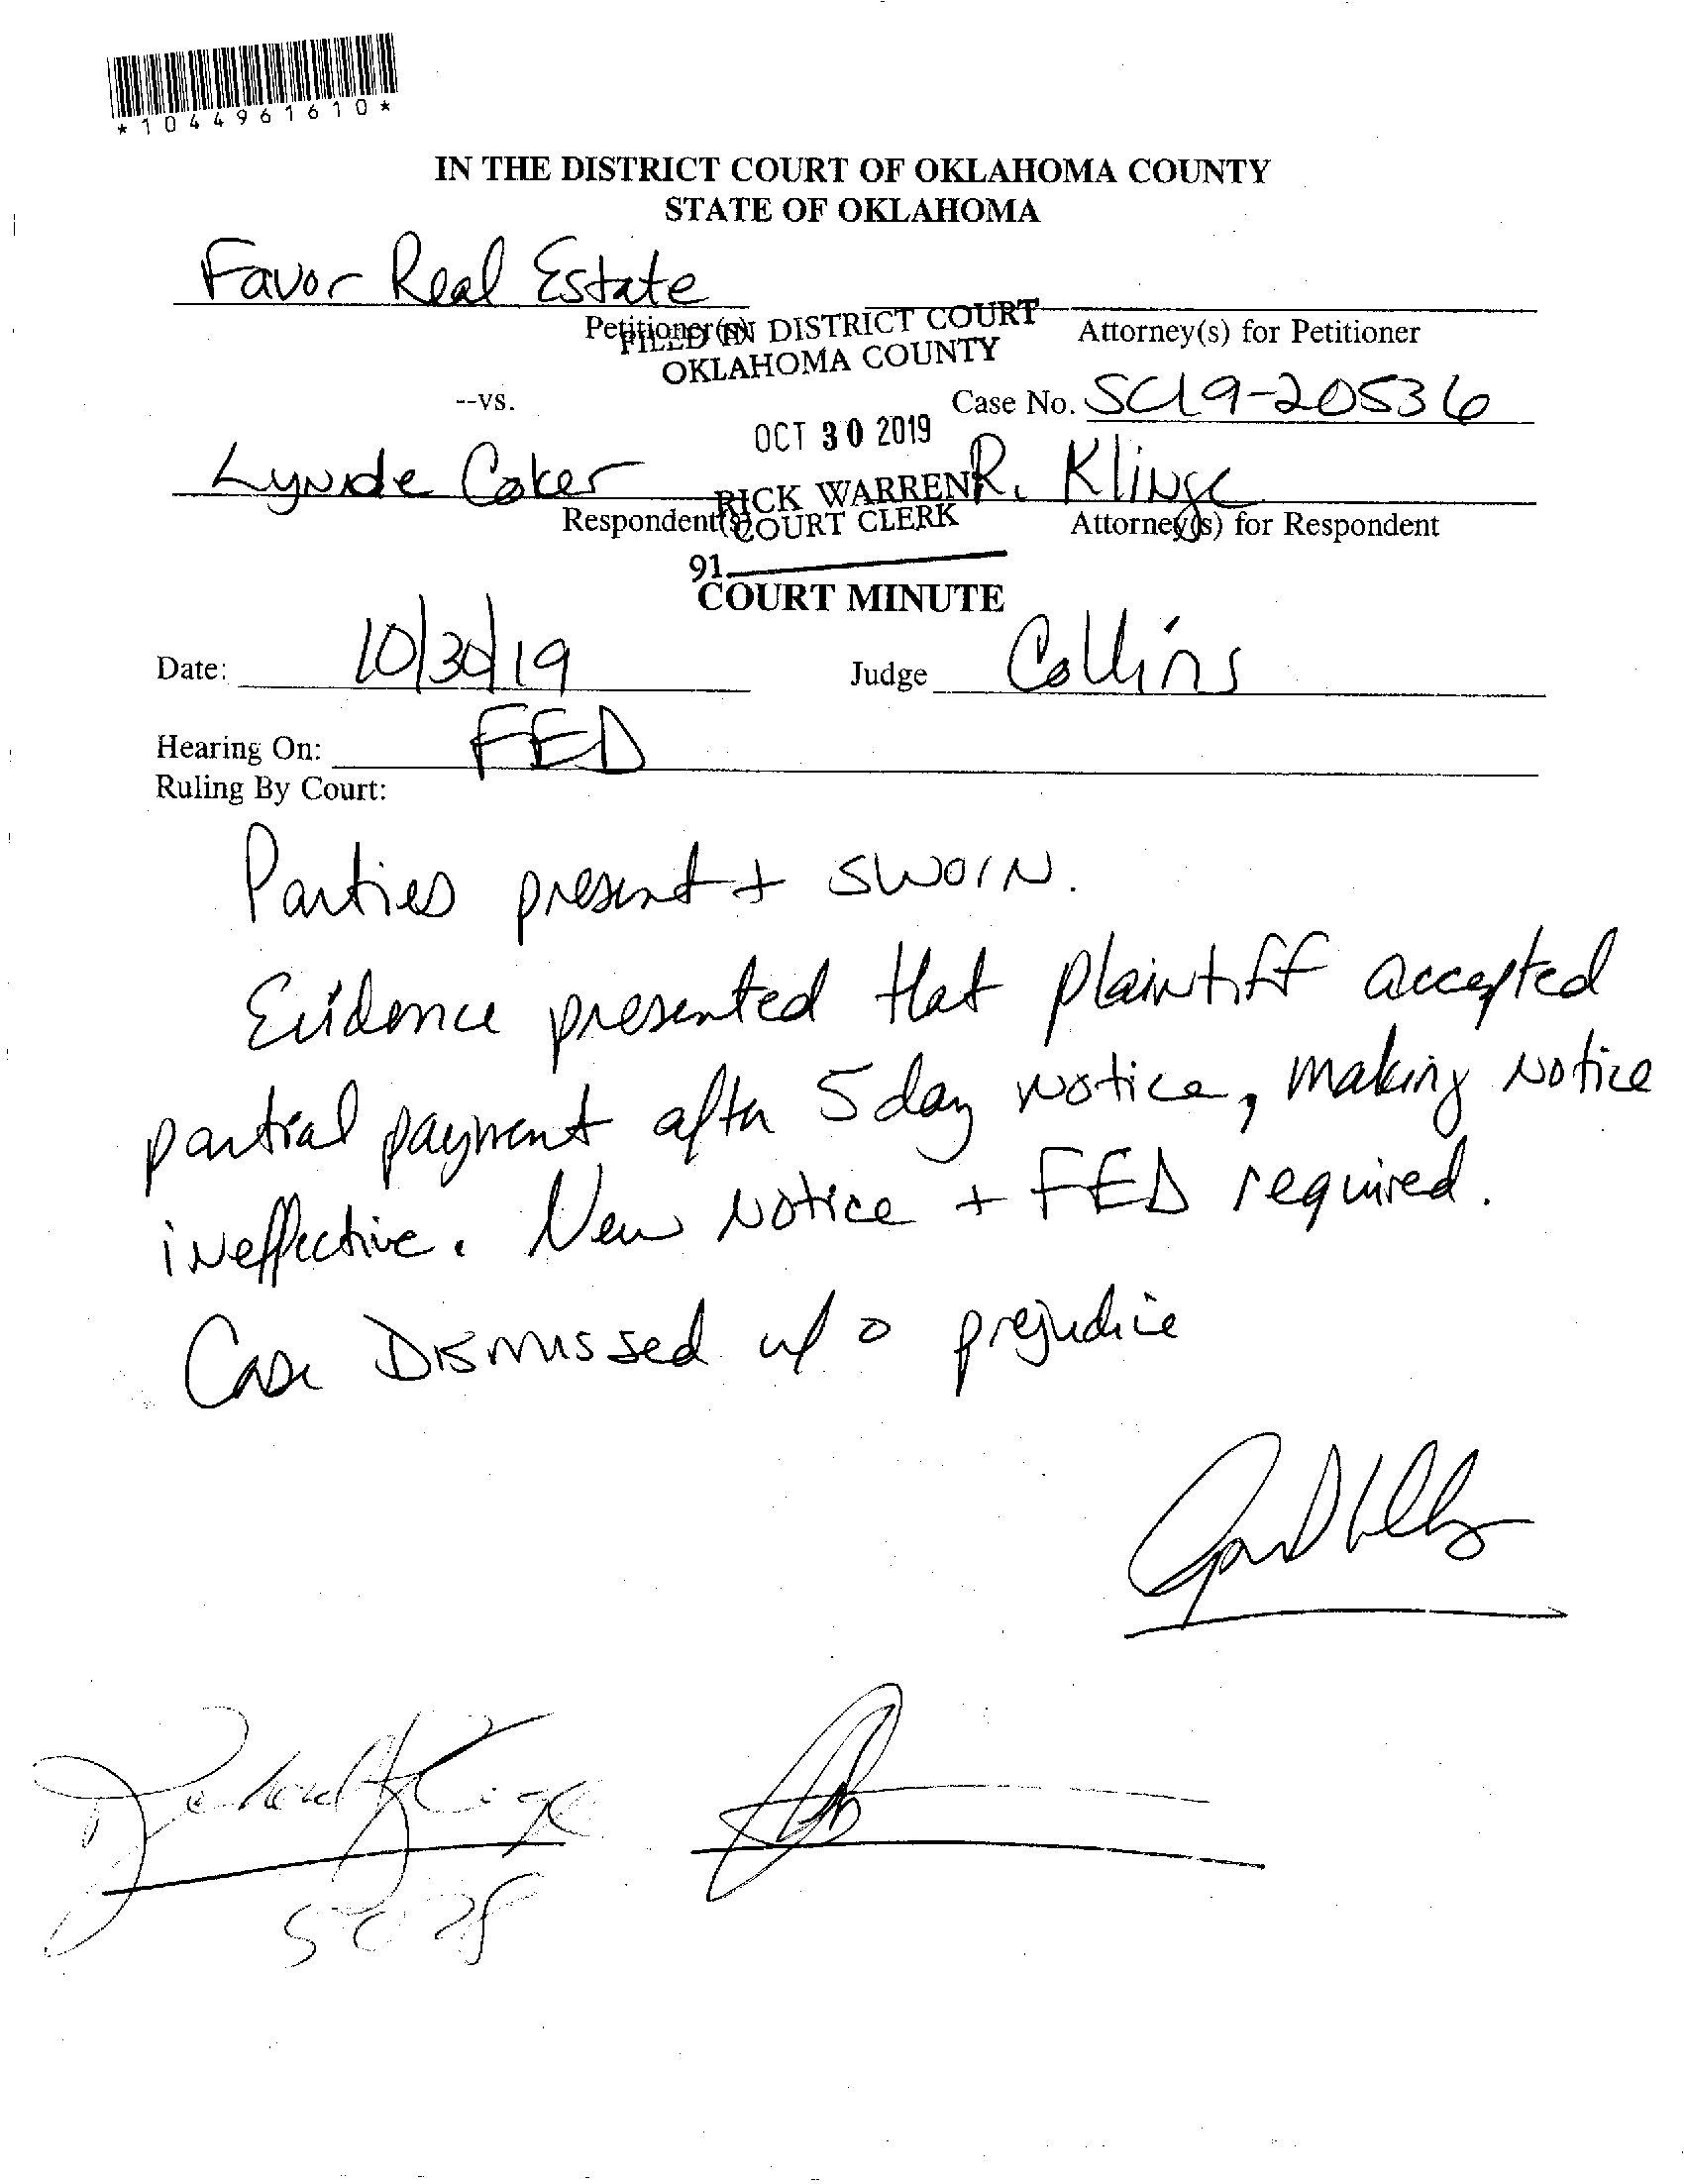 *1044961610*
IN THE DISTRICT COURT OF OKLAHOMA COUNTY
STATE OF OKLAHOMA
Favor Real Estate
Petitioner(s)
Attorney(s) for Petitioner
FILED IN DISTRICT COURT
OKLAHOMA COUNTY
--vs.
Case No. SC19-20536
OCT 30 2019
Lynde Coker
R. Klinge
RICK WARREN
Respondent(s)
COURT CLERK
Attorney(s) for Respondent
91
COURT MINUTE
Date: 10/30/19
Judge Collins
Hearing On: FED
Ruling By Court:
Parties present + sworn.
Evidence presented that plaintiff accepted
partial payment after 5 day notice, making notice
ineffective. New notice + FED required.
Case Dismissed w/o prejudice